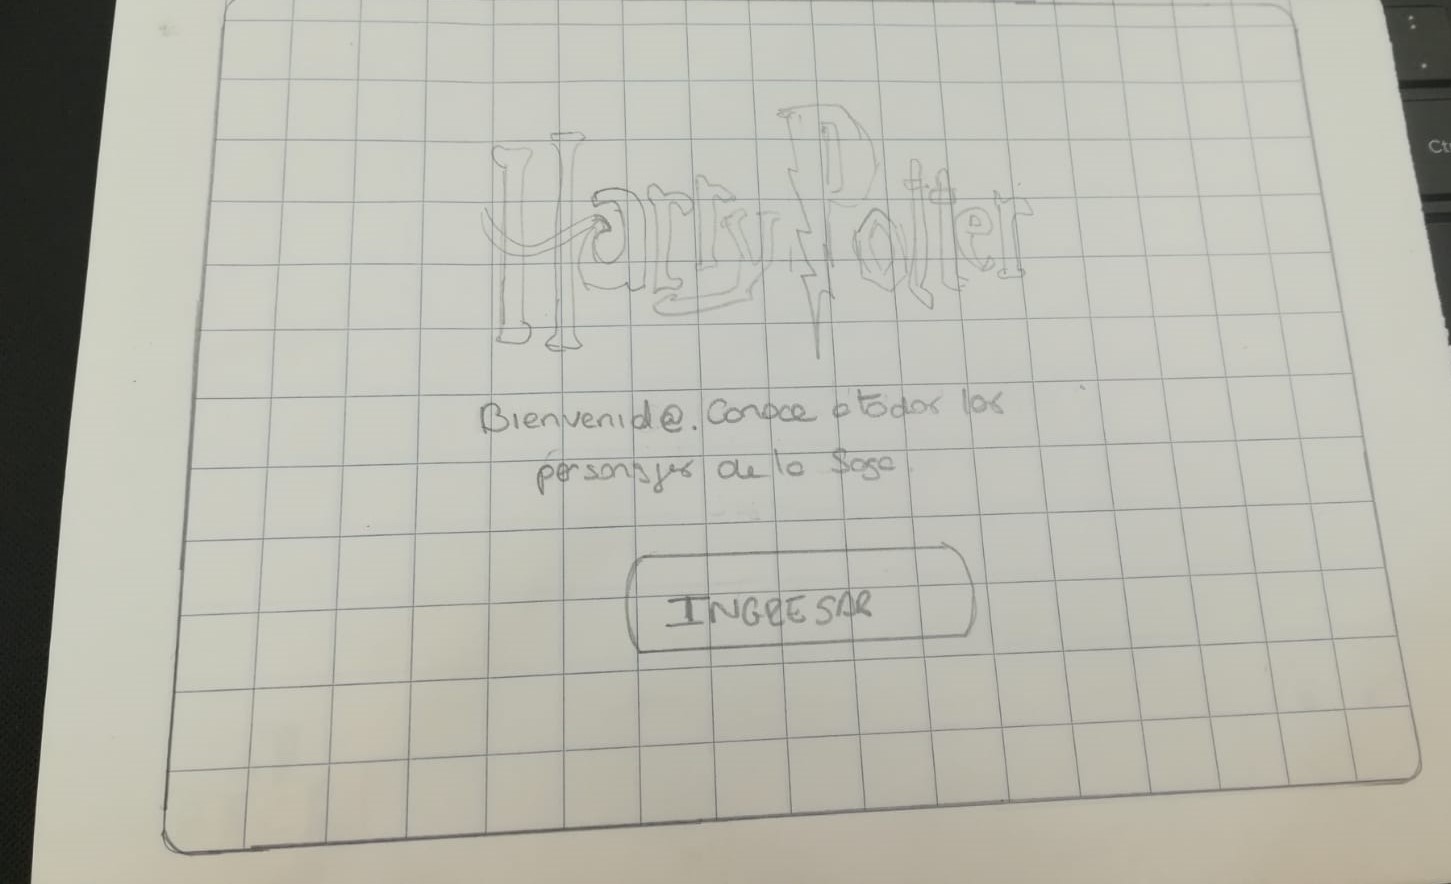 Harry Potter
Bienvenid@. Conoce a todos los
personajes de la Saga
INGRESAR